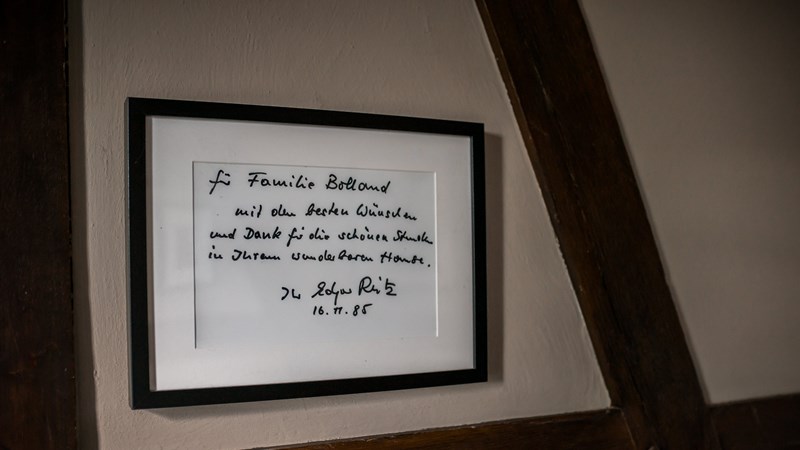 für Familie Bolland
mit den besten Wünschen
und Dank für die schönen Stunden
in Ihrem wunderbaren Hause.
Ihr Edgar Reitz
16.11.85